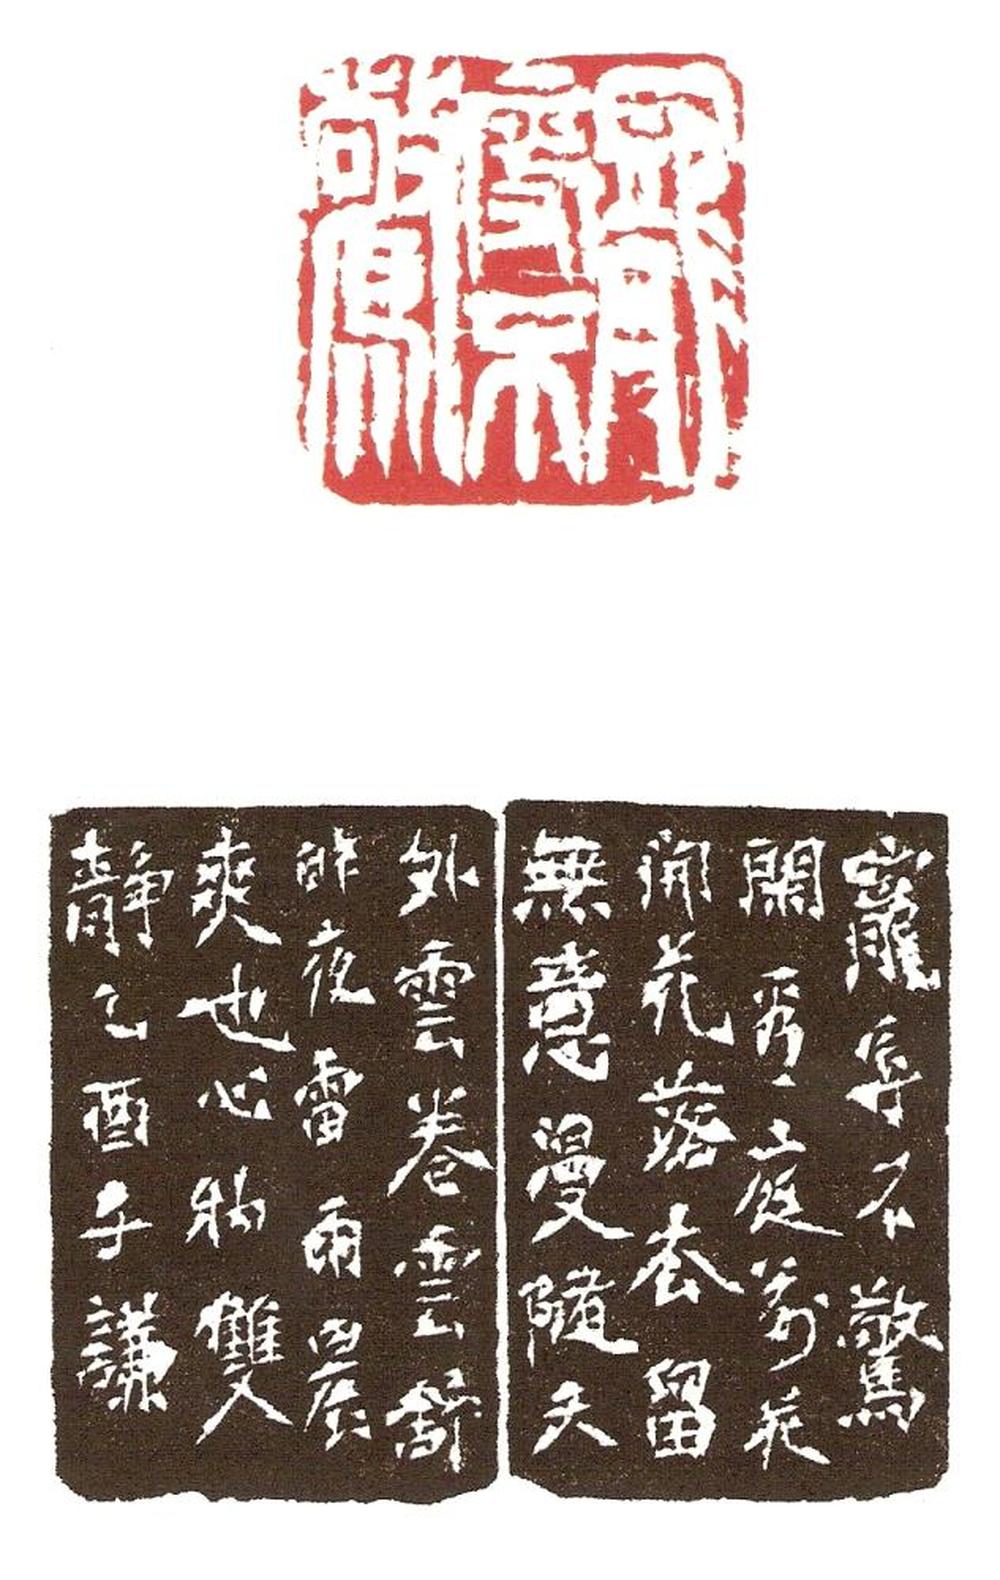 寵
辱不
驚
寵辱不驚
閑看庭前花
開花落去留
無意漫隨天
外雲卷雲舒
昨夜雷雨晨
爽也心物雙
靜乙酉謙